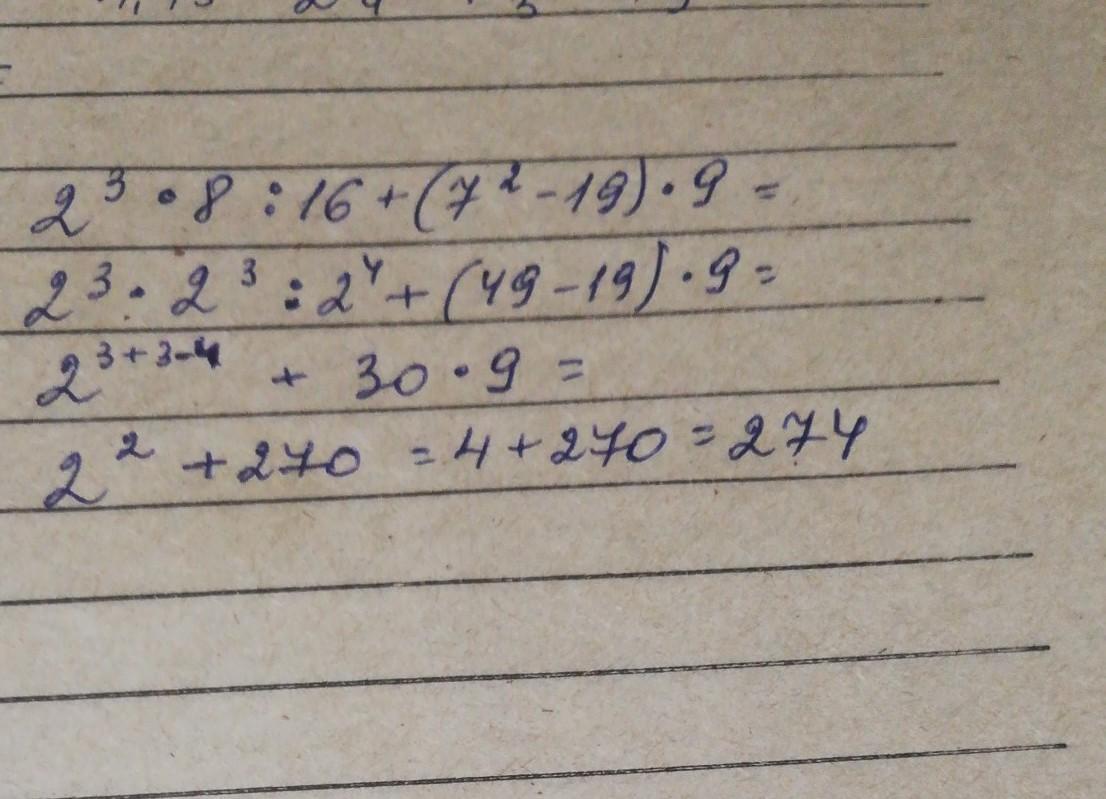 =
2³ · 8 : 16 + (7² - 19) · 9 =
2³ · 2³ : 2⁴ + (49 - 19) · 9 =
2³⁺³⁻⁴ + 30 · 9 =
2² + 270 = 4 + 270 = 274